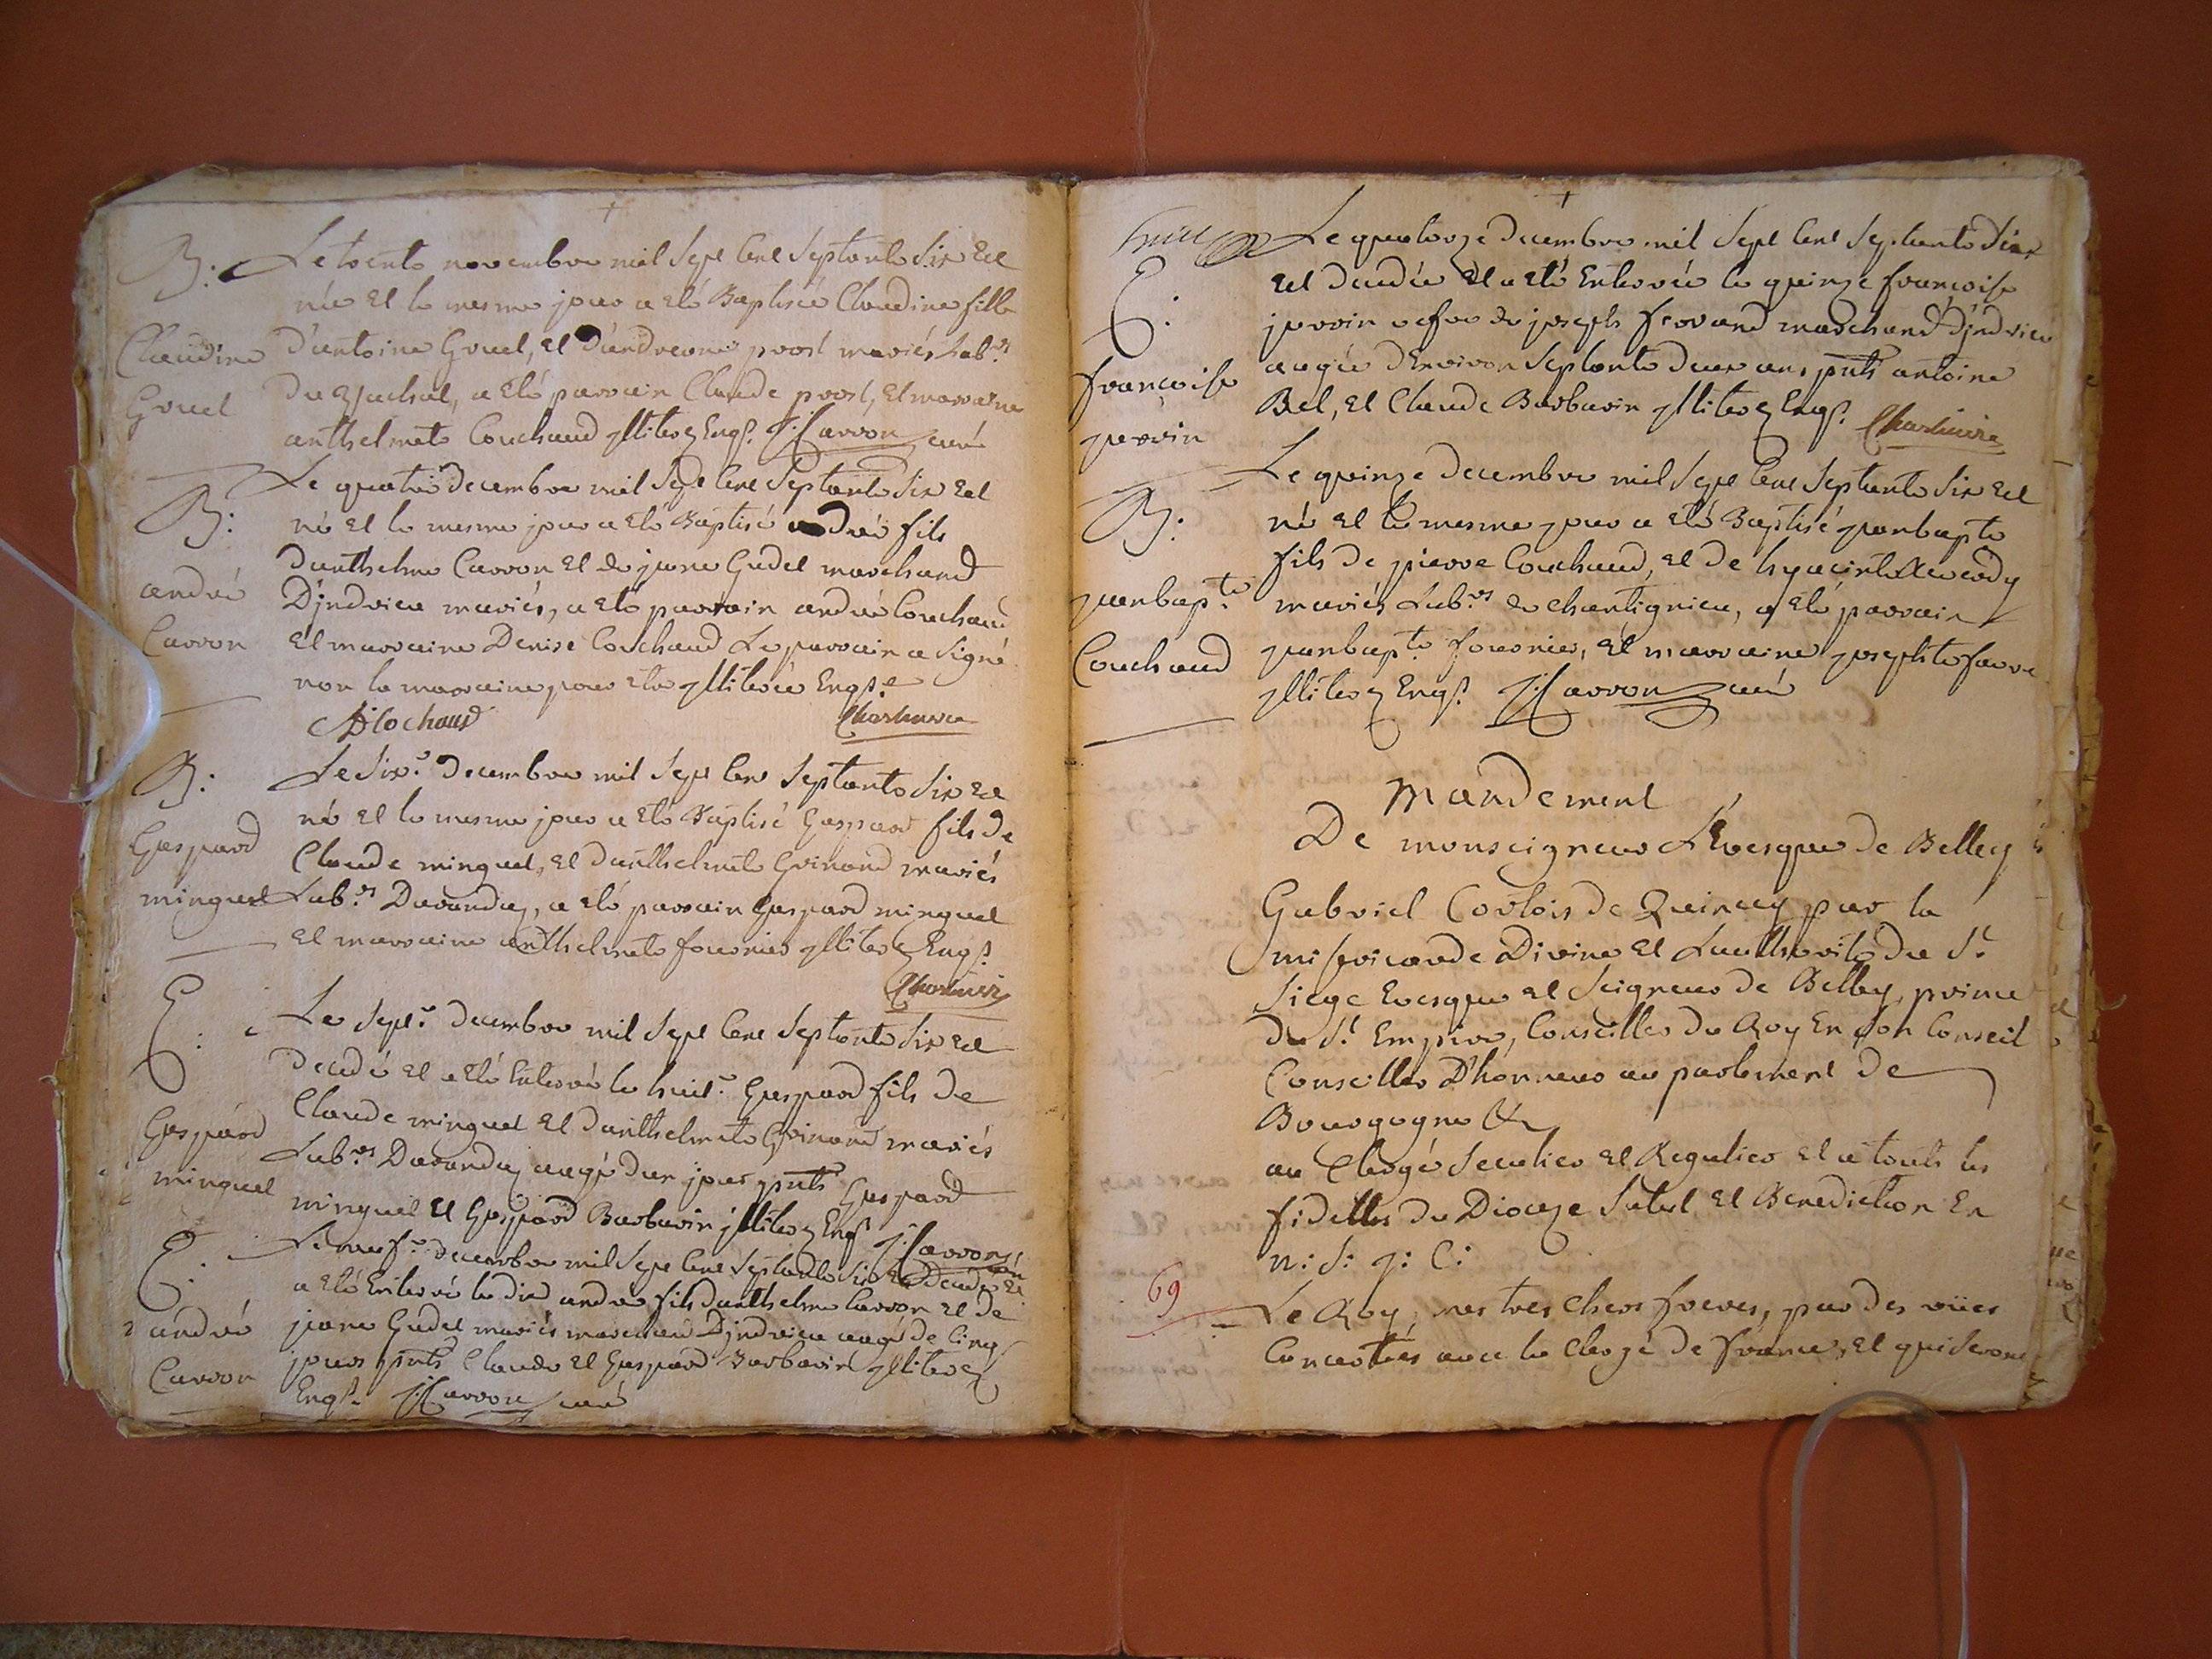 B:
Claudine
Gruel
Le trente novembre mil Sept Cent Septante Six Est
née Et le mesme jour a Eté Baptisée Claudine fille
d'antoine Gruel, et d'andreane prost mariés Lab.rs
a Eté parrain Claude prost, Et marraine
anthelmete Couchaud illiterez Enqs. J: Carron curé
B:
andré
Carron
Le quatre Decembre mil Sept Cent Septante Six Est
né Et le mesme jour a Eté Baptisé andré fils
danthelme Carron Et de jane Gudet marchand
Djndrieu mariés, a Eté parrain andré Couchaud
Et marraine Denise Couchaud Le parrain a Signé
non la marraine pour Etre jlliterée Enqse.
B:
Gaspard
minguet
Le Six.e Decembre mil Sept Cent Septante Six Est
né Et le mesme jour a Eté Baptisé Gaspard fils de
Claude minguet, Et danthelmete Guinand mariés
Lab.rs a Eté parrain Gaspard minguet
Et marraine anthelmete fournier jlliterez Enqs.
E:
Gaspard
minguet
Le Sept.e Decembre mil Sept Cent Septante Six Est
Decedé Et a Eté Enterré le huit.e Gaspard fils de
Claude minguet Et danthelmete Guinand mariés
Lab.rs aagé dun jour pnts Gaspard
minguet Et Gaspard Barbarin jlliterez Enqs J: Carron curé
E:
andré
Carron
Le neuf.e decembre mil Sept Cent Septante Six Est Decedé Et
a Eté Enterré le dix andré fils danthelme Carron Et de
jane Gudet mariés marchand Djndrieu aagé de Cinq
jours pnts Claude Et Gaspard Barbarin jlliterez
Enqs. J: Carron curé
E:
françoise
perrin
Le quatorze Decembre mil Sept Cent Septante Six
Est Decedée Et a Eté Enterrée le quinze françoise
perrin vefve de joseph ferrand marchand Djndrieu
aagée dEnviron Septante deux ans pnts antoine
Bel, Et Claude Barbarin jlliterez Enqs.
B:
janbapt.te
Couchaud
Le quinze Decembre mil Sept Cent Septante Six Est
né Et le mesme jour a Eté Baptisé janbapte
fils de pierre Couchaud, Et de hyacinte
mariés Lab.rs de chantignieu, a Eté parrain
janbapt.te fournier, Et marraine josephte favre
jlliterez Enqs. J: Carron curé
Mandement
De monseigneur L'Evesque de Belley
Gabriel Cortois de Quincey par la
misericorde Divine Et Lauthorité du St
Siege Evesque Et Seigneur de Belley, prince
du St Empire, Conseiller du Roy En son Conseil
Conseiller D'honneur au parlement de
Bourgogne &c
au Clergé Seculier Et Regulier Et a touts les
fidelles du Dioceze Salut Et Benediction En
n: S: j: C:
69
Le Roy, nos tres chers freres, par des vües
Concertées avec le clergé de france, Et qui seront